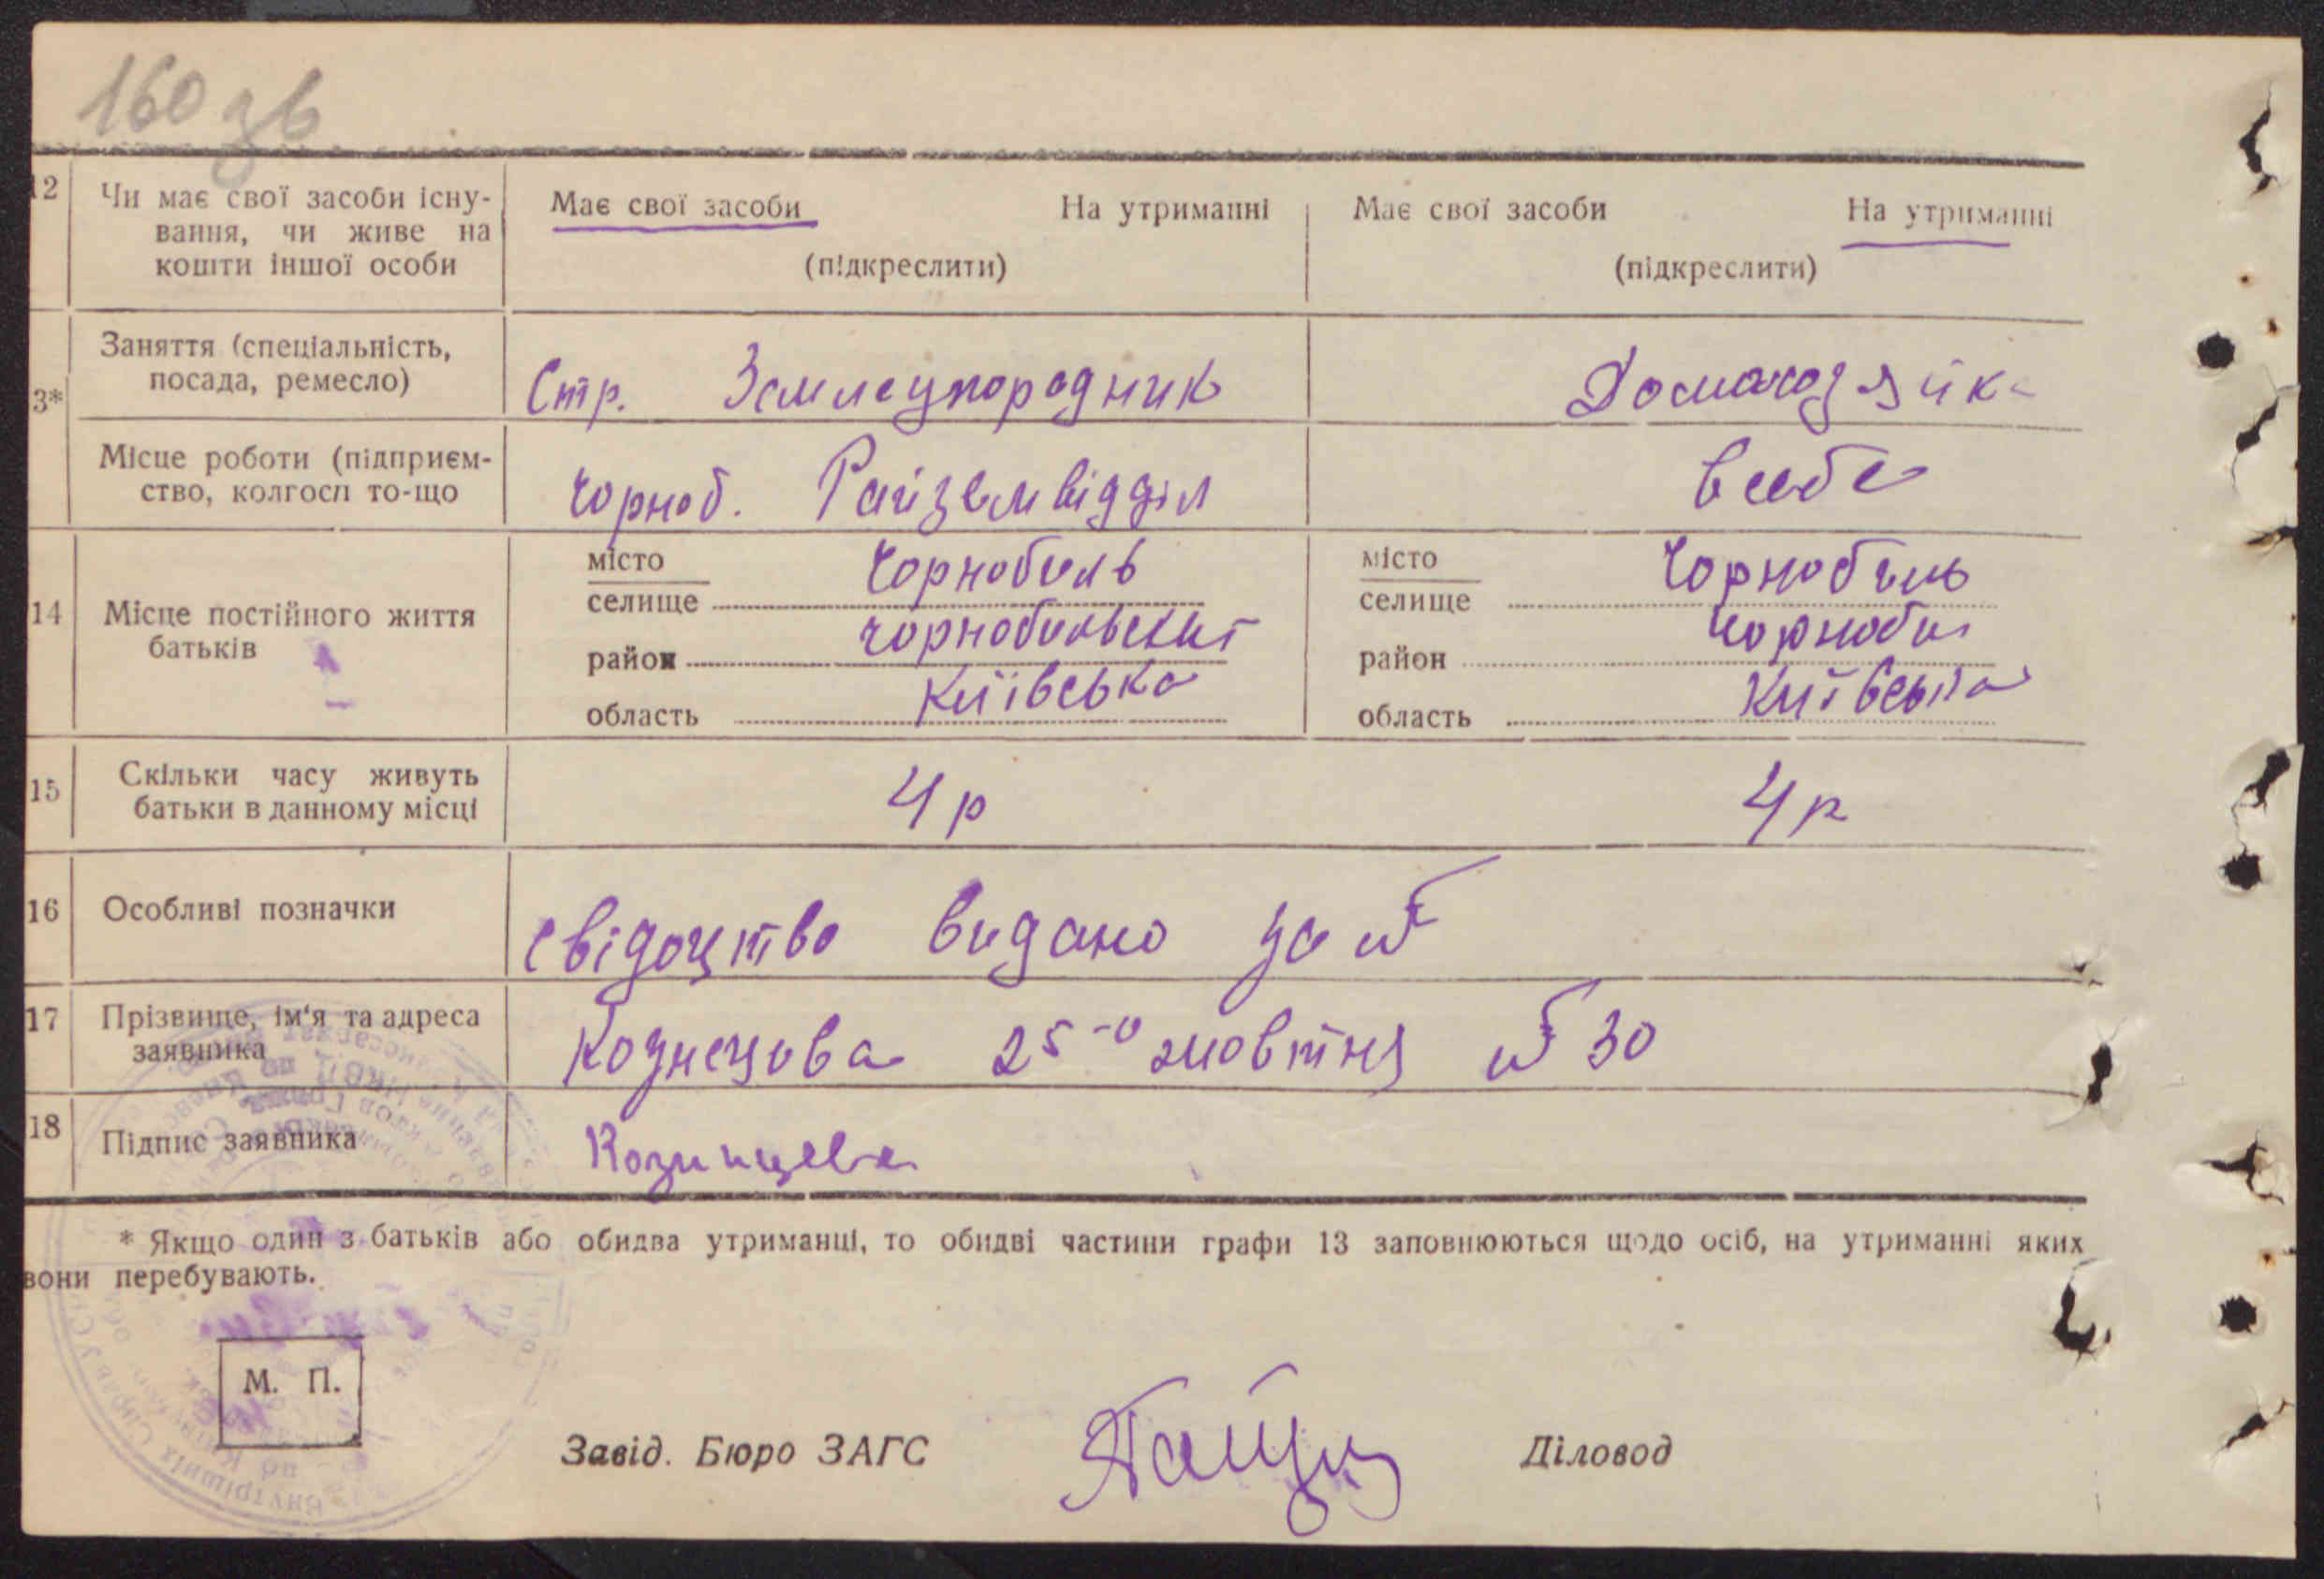 160 зв
12 Чи має свої засоби існу-
вання, чи живе на
кошти іншої особи
Має свої засоби На утриманні Має свої засоби На утриманні
(підкреслити) (підкреслити)
3* Заняття (спеціальність,
посада, ремесло)
Стр. Землеупорядник Домохозяйка
Місце роботи (підприєм-
ство, колгосп то-що
Чорноб. Райземвідділ в себе
14 Місце постійного життя
батьків
місто
селище Чорнобиль
район Чорнобильский
область Київська
місто
селище Чорнобиль
район Чорноби
область Київська
15 Скільки часу живуть
батьки в данному місці
4 р 4 р
16 Особливі позначки
свідоцтво видано за №
17 Прізвище, ім'я та адреса
заявника
25-о жовтня № 30
18 Підпис заявника
* Якщо один з батьків або обидва утриманці, то обидві частини графи 13 заповнюються щодо осіб, на утриманні яких
вони перебувають.
М. П.
Завід. Бюро ЗАГС Діловод